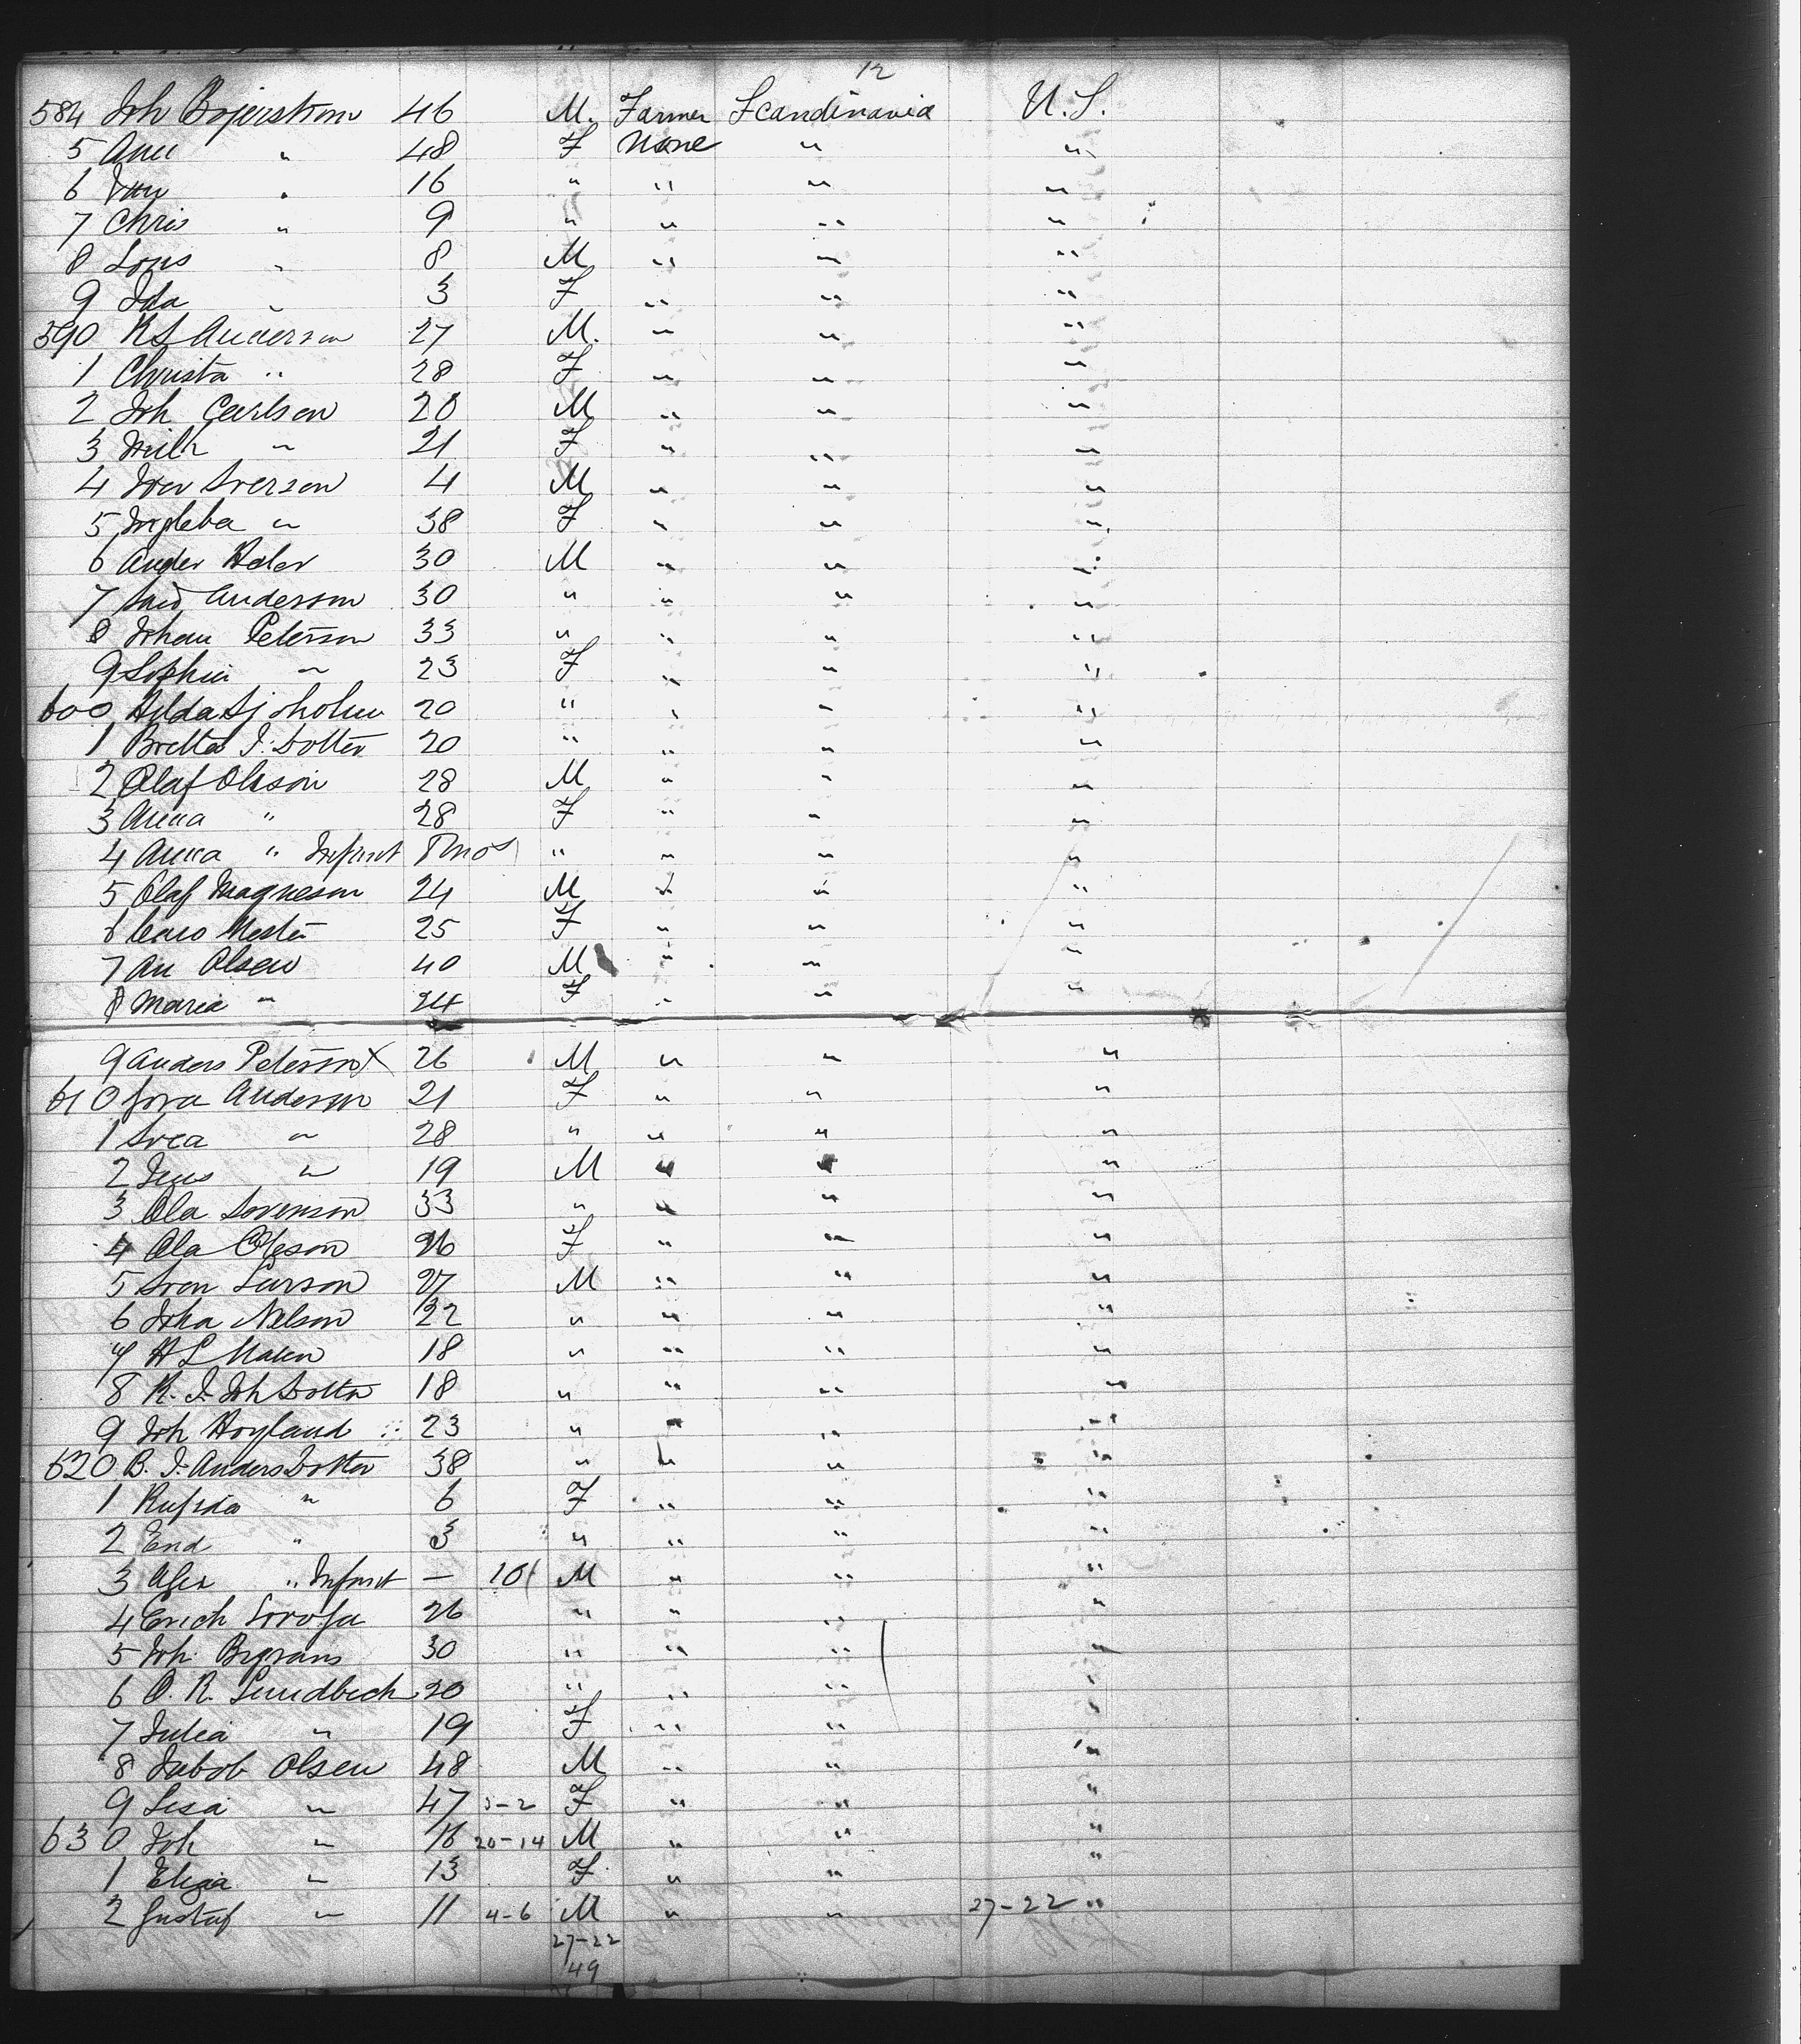 12
584 Joh Bojerstrom 46 M. Farmer Scandinavia U.S.
5 Ann " 48 F None " "
6 " 16 " " " "
7 Chris " 9 " " " "
8 " 8 M " " "
9 Ida " 3 F " " "
590 Anderson 27 M. " " "
1 Christa " 28 F " " "
2 Joh Carlson 20 M " " "
3 " 21 F " " "
4 Iver Iverson 4 M " " "
5 Ingleba " 38 F " " "
6 Ander 30 M " " "
7 Anderson 30 " " " "
8 Johan Peterson 33 " " " "
9 Sophia " 23 F " " "
600 Hilda Sjoholm 20 " " " "
1 Dotter 20 " " " "
2 Olaf Olsson 28 M " " "
3 Anna " 28 F " " "
4 Anna " Infant 8 mos " " " "
5 Olaf Magneson 24 M " " "
6 25 F " " "
7 An Olsen 40 M " " "
8 Maria " 24 F " " "
9 Anders Peterson X 26 M " " "
610 Anderson 21 F " " "
1 Svea " 28 " " " "
2 Jens " 19 M " " "
3 Ola Sorenson 33 " " " "
4 Ola Oleson 26 F " " "
5 Sven Larson 27 M " " "
6 Joha Nelson 22 " " " "
7 H L 18 " " " "
8 K. J. Joh Dotter 18 " " " "
9 Joh Hoyland 23 " " " "
620 B. J. Anders Dotter 38 " " " "
1 " 6 F " " "
2 " 3 " " " "
3 " Infant — 10 M " " "
4 Erich 26 " " " "
5 Joh. 30 " " " "
6 O. R. Lundbech 20 " " " "
7 Julia " 19 F " " "
8 Jakob Olsen 48 M " " "
9 Lisa " 47 3-2 F " " "
630 Joh " 16 20-14 M " " "
1 " 13 F " " "
2 Gustaf " 11 4-6 M " " 27-22 "
27-22
49